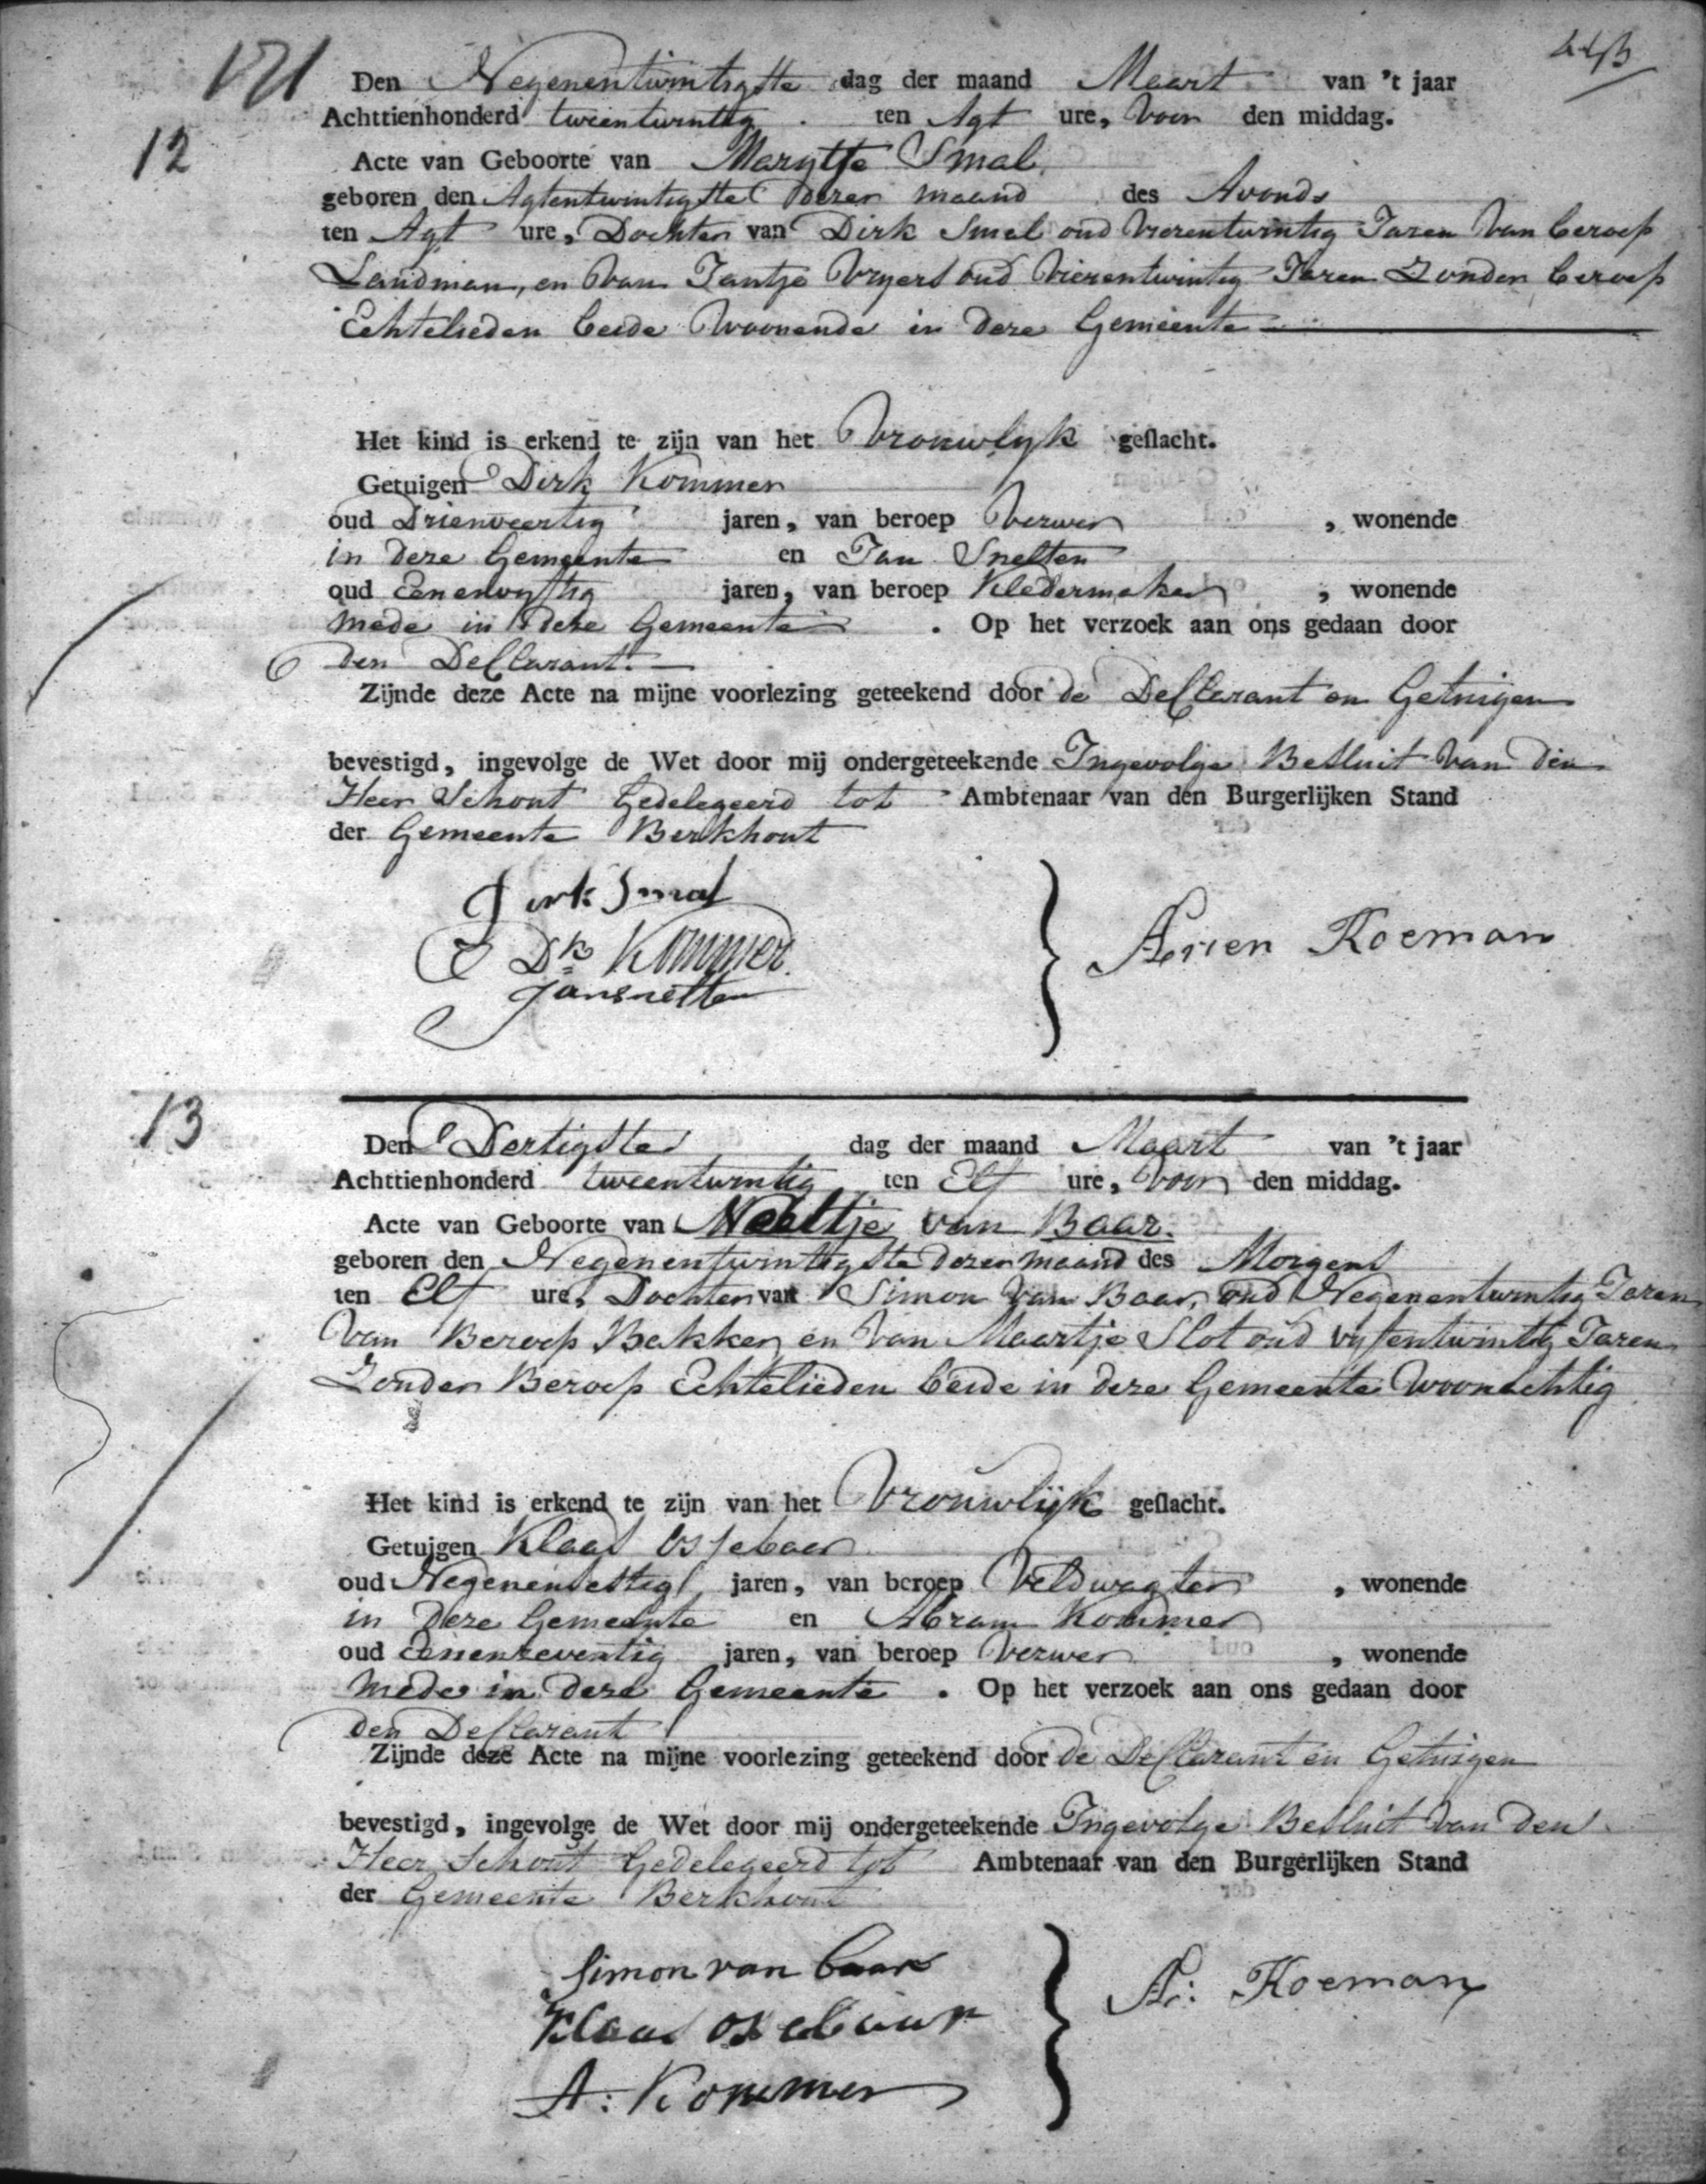 Den Negenentwintigste dag der maand Maart van 't jaar
12
Achttienhonderd tweentwintig ten Agt ure, Voor den middag.
Acte van Geboorte van Marytje Smal
geboren den Agtentwintigste dezer maand des Avonds
ten Agt ure, Dochter van Dirk Smal oud Vierentwintig Jaren Van beroep
Landman, en Van Jantje Vryers oud Vierentwintig Jaren Zonder beroep
Echtelieden beide Woonende in deze Gemeente
Het kind is erkend te zijn van het Vrouwlyk geslacht.
Getuigen Dirk Kommer
oud Drienveertig jaren, van beroep Verwer, wonende
in deze Gemeente en Jan Snelten
oud Eenenvyftig jaren, van beroep Kledermaker, wonende
mede in deze Gemeente. Op het verzoek aan ons gedaan door
den Declarant.
Zijnde deze Acte na mijne voorlezing geteekend door de Declarant en Getuigen
bevestigd, ingevolge de Wet door mij ondergeteekende Ingevolge Besluit Van den
Heer Schout Gedelegeerd tot Ambtenaar van den Burgerlijken Stand
der Gemeente Berkhout
Dirk Smal
Dk Kommer
Jan Snelten
Arien Koeman
13
Den Dertigste dag der maand Maart van 't jaar
Achttienhonderd tweentwintig ten Elf ure, Voor den middag.
Acte van Geboorte van Neeltje van Baar.
geboren den Negenentwintigste dezer maand des Morgens
ten Elf ure, Dochter van Simon Van Baar, oud Negenentwintig Jaren
Van Beroep Bakker, en Van Maartje Slot oud vyfentwintig Jaren
Zonder Beroep Echtelieden beide in deze Gemeente Woonachtig
Het kind is erkend te zijn van het Vrouwlijk geslacht.
Getuigen Klaas Ossebaar
oud Negenensestig jaren, van beroep Veldwagter, wonende
in deze Gemeente en Abram Kommer
oud Eenenzeventig jaren, van beroep Verwer, wonende
mede in deze Gemeente. Op het verzoek aan ons gedaan door
den Declarant
Zijnde deze Acte na mijne voorlezing geteekend door de Declarant en Getuigen
bevestigd, ingevolge de Wet door mij ondergeteekende Ingevolge Besluit Van den
Heer Schout Gedelegeerd tot Ambtenaar van den Burgerlijken Stand
der Gemeente Berkhout
Simon van baar
Klaas ossebaar
A: Kommer
A: Koeman